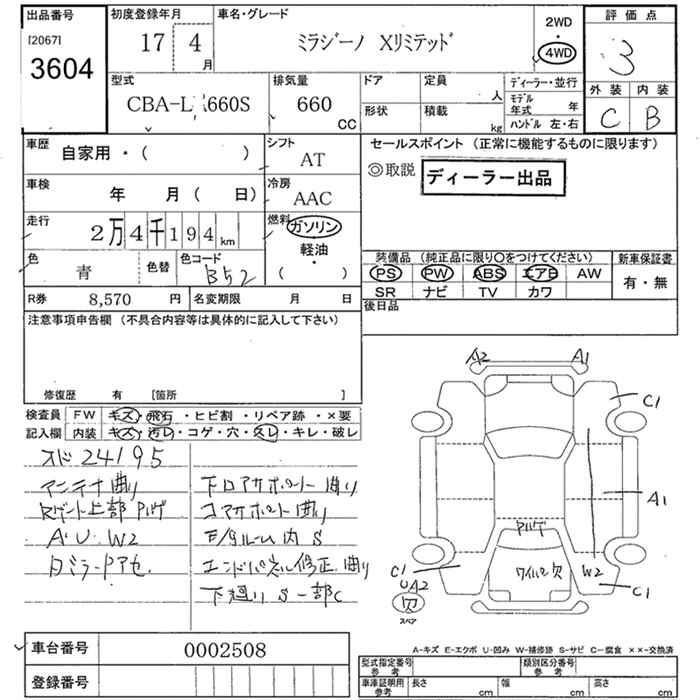 出品番号
[2067]
3604
初度登録年月
17 4
月
車名・グレード
ミラジーノ Xリミテッド
2WD
・
4WD
評価点
3
外装 内装
C B
型式
CBA-L 660S
排気量
660
CC
ドア 定員
人
形状 積載
kg
ディーラー・並行
モデル
年式 年
ハンドル 左・右
車歴
自家用・( )
シフト
AT
車検
年 月( 日)
冷房
AAC
走行
2万4千194km
燃料
ガソリン
軽油
・
( )
色
青
色替
色コード
B52
R券 8,570 円
名変期限 月 日
セールスポイント (正常に機能するものに限ります)
◎取説
ディーラー出品
装備品 (純正品に限り○をつけてください)
PS PW ABS エアB AW
SR ナビ TV カワ
新車保証書
有・無
後日品
注意事項申告欄 (不具合内容等は具体的に記入して下さい)
修復歴 有 [箇所 ]
検査員 FW キズ・飛石・ヒビ割・リペア跡・×要
記入欄 内装 キズ・汚レ・コゲ・穴・スレ・キレ・破レ
スド 24195
アンテナ曲り
Rゲート上部 Pハゲ
A.U.W2
下ロアサポート曲り
コアサポート曲り
E/gルーム内 S
エンドパネル修正 曲り
下廻り S 一部C
A2 A1
C1
A1
Pハゲ
ワイパー欠
W2
C1
C1
UA2
欠
スペア
A-キズ E-エクボ U-凹み W-補修跡 S-サビ C-腐食 ××-交換済
車台番号 0002508
登録番号
型式指定番号
参考
類別区分番号
参考
車庫証明用
参考
長さ cm
幅 cm
高さ cm